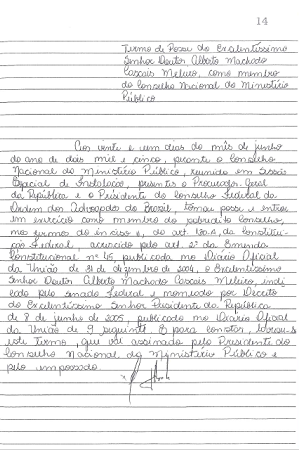 14
Termo de Posse do Excelentíssimo
Senhor Doutor Alberto Machado
Cascais Meleiro, como membro
do Conselho Nacional do Ministério
Público
Aos vinte e um dias do mês de junho
do ano de dois mil e cinco, perante o Conselho
Nacional do Ministério Público, reunido em Sessão
Especial de Instalação, presentes o Procurador-Geral
da República e o Presidente do Conselho Federal da
Ordem dos Advogados do Brasil, tomou posse e entrou
em exercício como membro do referido Conselho,
nos termos do inciso V, do art. 130-A, da Constitui-
ção Federal, acrescido pelo art. 2º da Emenda
Constitucional nº 45, publicada no Diário Oficial
da União de 31 de dezembro de 2004, o Excelentíssimo
Senhor Doutor Alberto Machado Cascais Meleiro, indi
cado pelo Senado Federal e nomeado por Decreto
do Excelentíssimo Senhor Presidente da República
de 8 de junho de 2005, publicado no Diário Oficial
da União de 9 seguinte. E para constar, lavrou-s
este termo, que vai assinado pelo Presidente do
Conselho Nacional do Ministério Público e
pelo empossado.